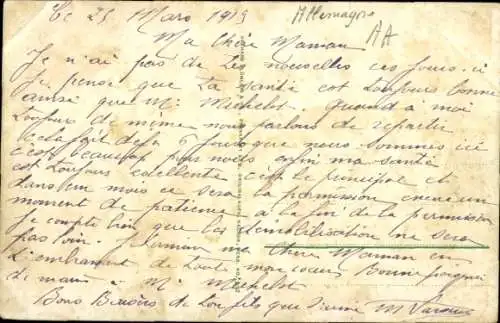 Le 25 Mars 1919
Allemagne
AA
Ma Chère Maman
Je n'ai pas de tes nouvelles ces jours-ci
Je pense que ta santé est toujours bonne
ainsi que Mr Michelot. Quand à moi
toujours de même nous parlons de repartir
cela fait déjà 6 jours que nous sommes ici
c'est beaucoup pour nous enfin ma santé
est toujours excellente c'est le principal et
dans un mois ce sera la permission encore un
moment de patience à la fin de la permission
Je compte bien que la démobilisation ne sera
pas loin. Je termine ma Chère Maman en
t'embrassant de tout mon cœur Bonne
de main à Mr Michelot
Bons Baisers de ton fils que t'aime M